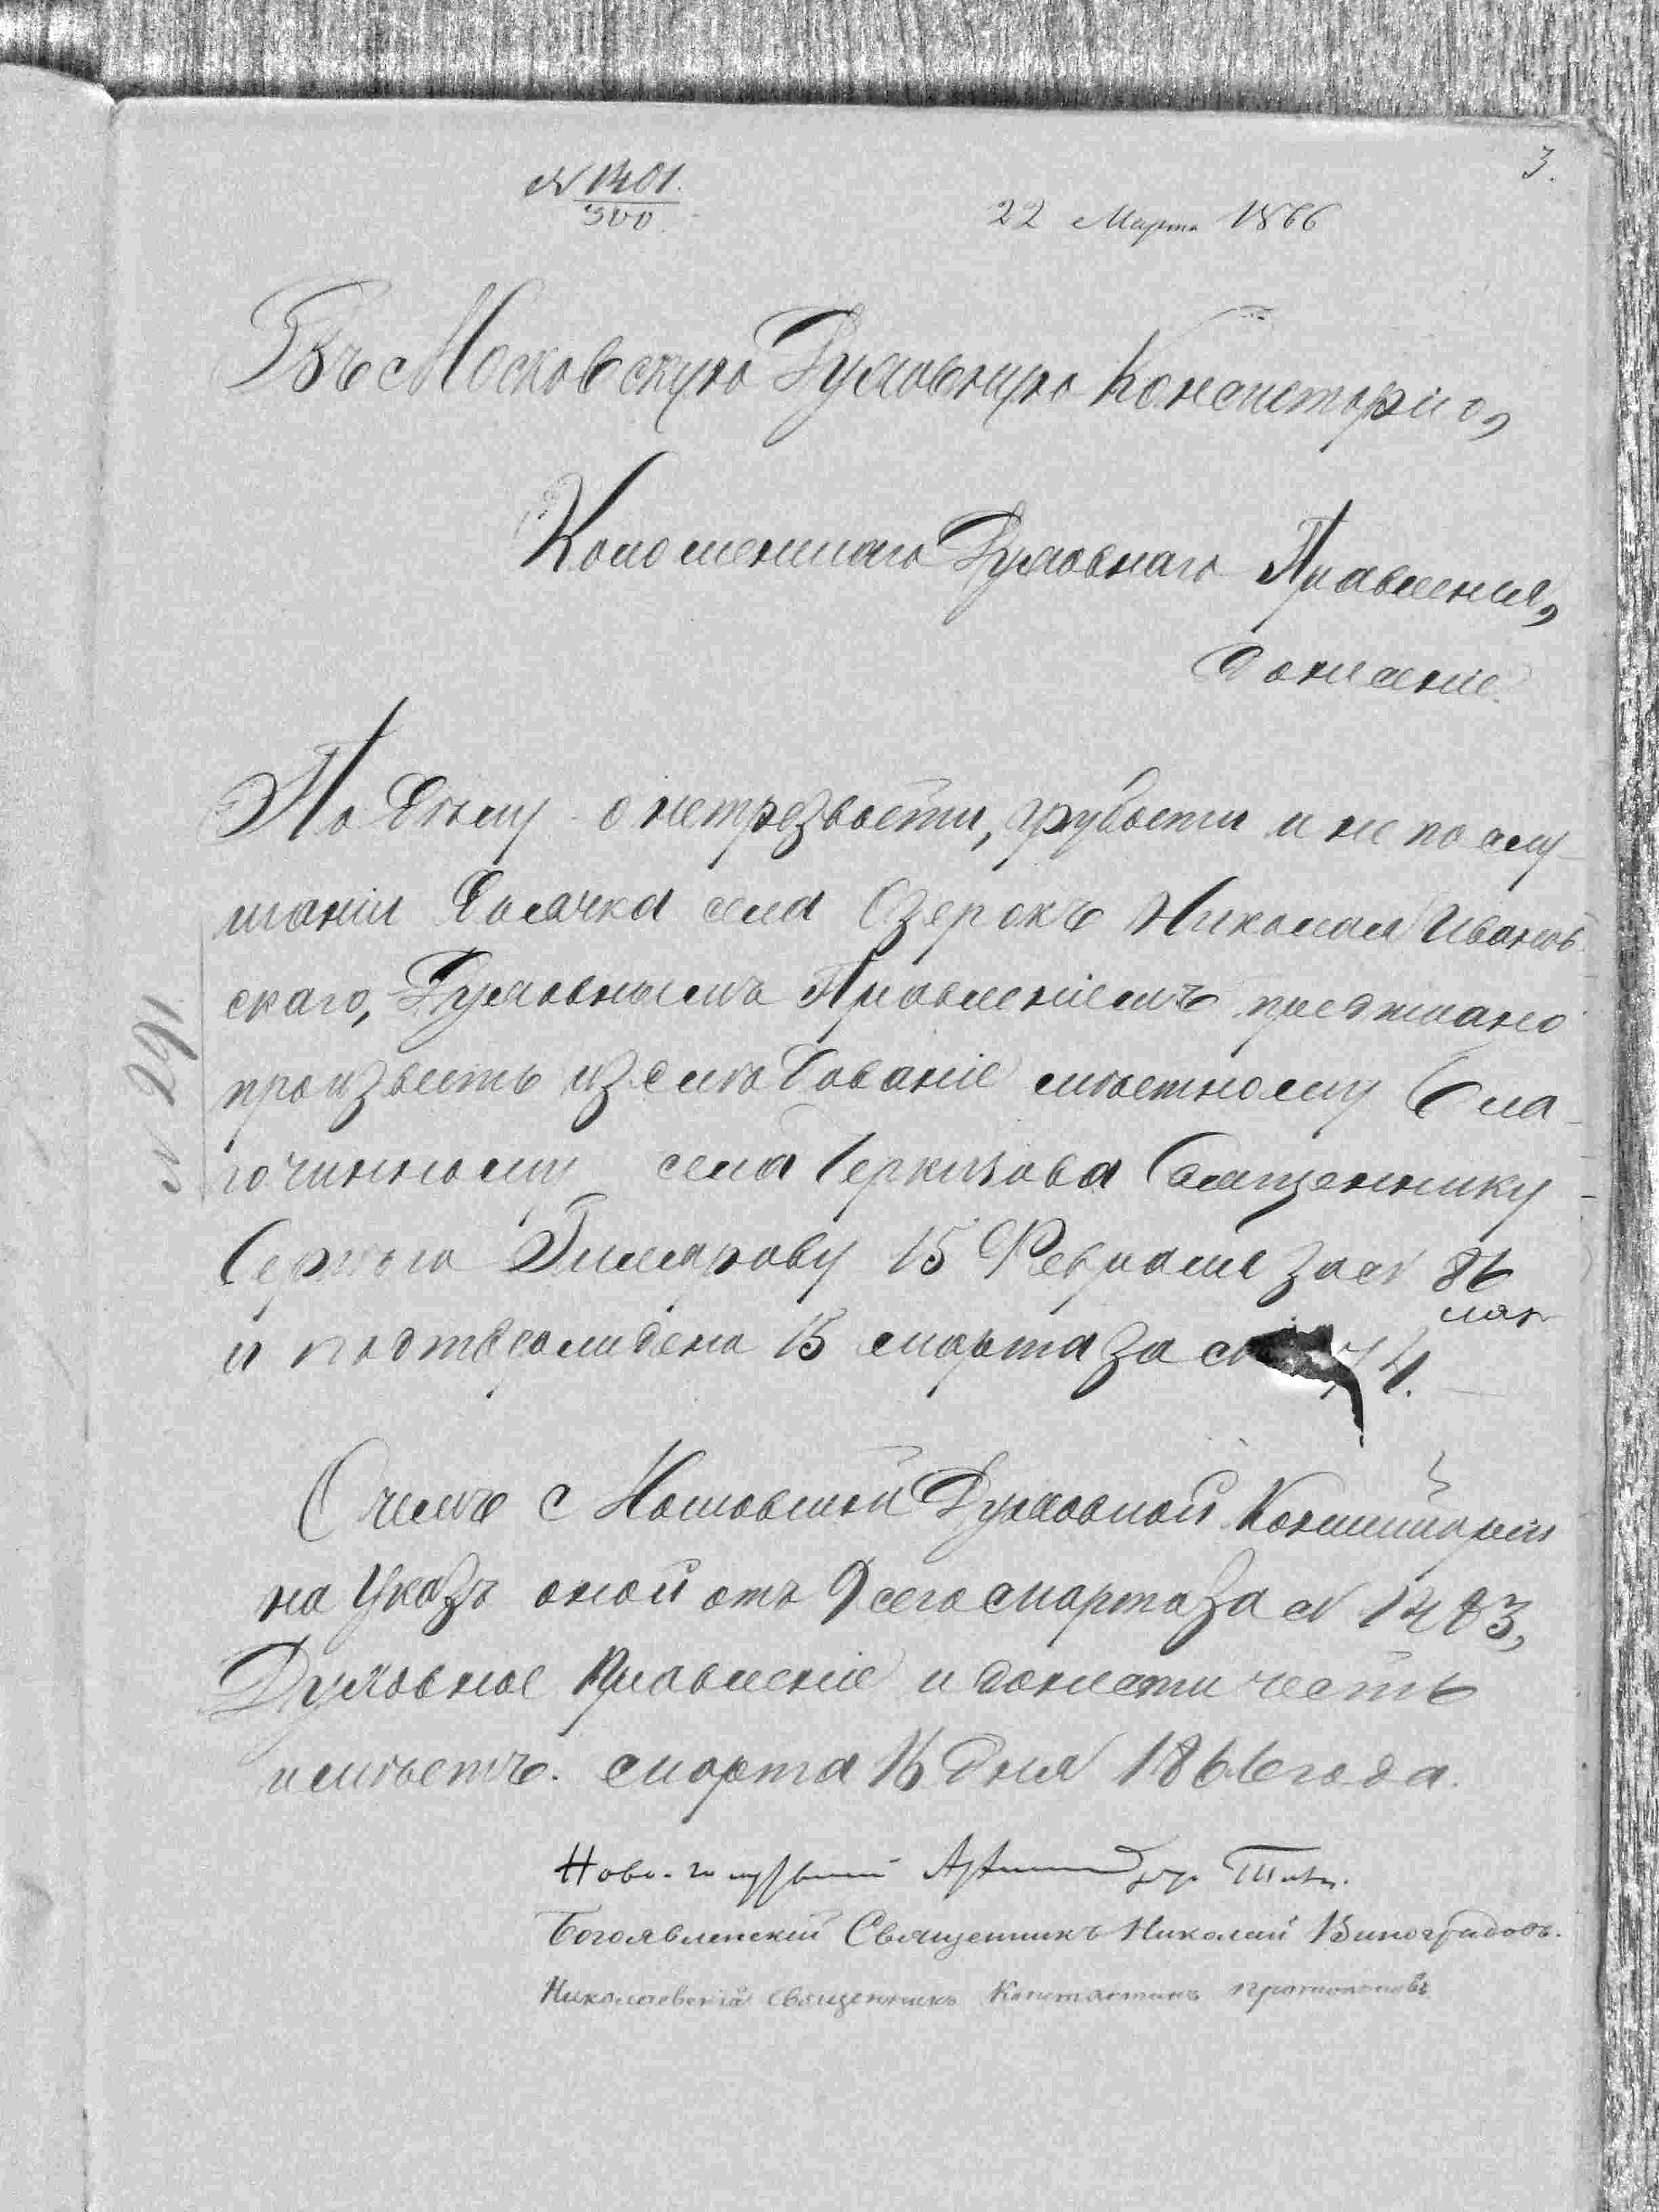 3.
№ 1401.
300
22 Марта 1866
Въ Московскую Духовную Консисторію,
Коломенскаго Духовнаго Правленія,
Донесеніе.
По дѣлу о нетрезвости, грубости и не послу-
шаніи Дьячка села Озерокъ Николая Иванов-
скаго, Духовнымъ Правленіемъ предписано
произвесть изслѣдованіе мѣстному Бла-
гочинному села Черкизова Священнику
Сергѣю 15 Февраля за № 86
и подтверждено 15 марта за № 74.
О чемъ Московской Духовной Консисторіи
на Указъ оной отъ 9 сего марта за № 1283,
Духовное Правленіе и донести честь
имѣетъ. Марта 16 дня 1866 года.
Архимандритъ
Богоявленскій Священникъ Николай Виноградовъ.
Николаевскій Священникъ Константинъ Протопоповъ
№ 291